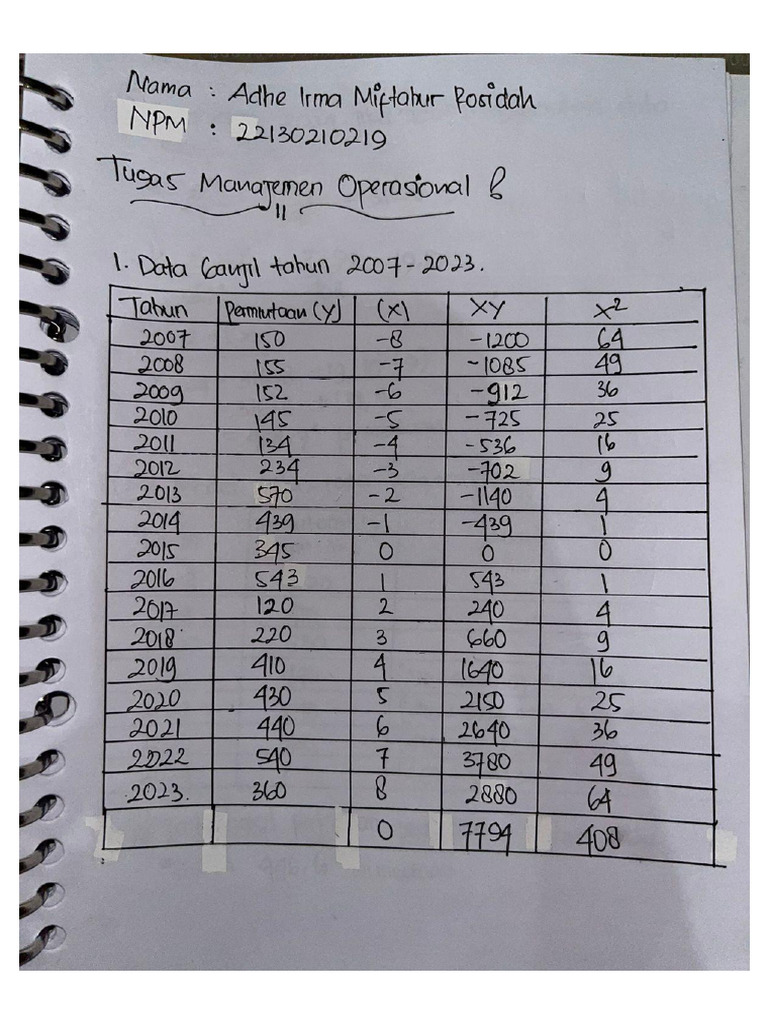 Nama : Adhe Irma Miftahur Rosidah
NPM : 22130210219
Tugas Manajemen Operasional
1. Data Ganjil tahun 2007-2023.
Tahun Permintaan (Y) (X) XY X²
2007 150 -8 -1200 64
2008 155 -7 -1085 49
2009 152 -6 -912 36
2010 145 -5 -725 25
2011 134 -4 -536 16
2012 234 -3 -702 9
2013 570 -2 -1140 4
2014 439 -1 -439 1
2015 345 0 0 0
2016 543 1 543 1
2017 120 2 240 4
2018 220 3 660 9
2019 410 4 1640 16
2020 430 5 2150 25
2021 440 6 2640 36
2022 540 7 3780 49
2023. 360 8 2880 64
0 7794 408